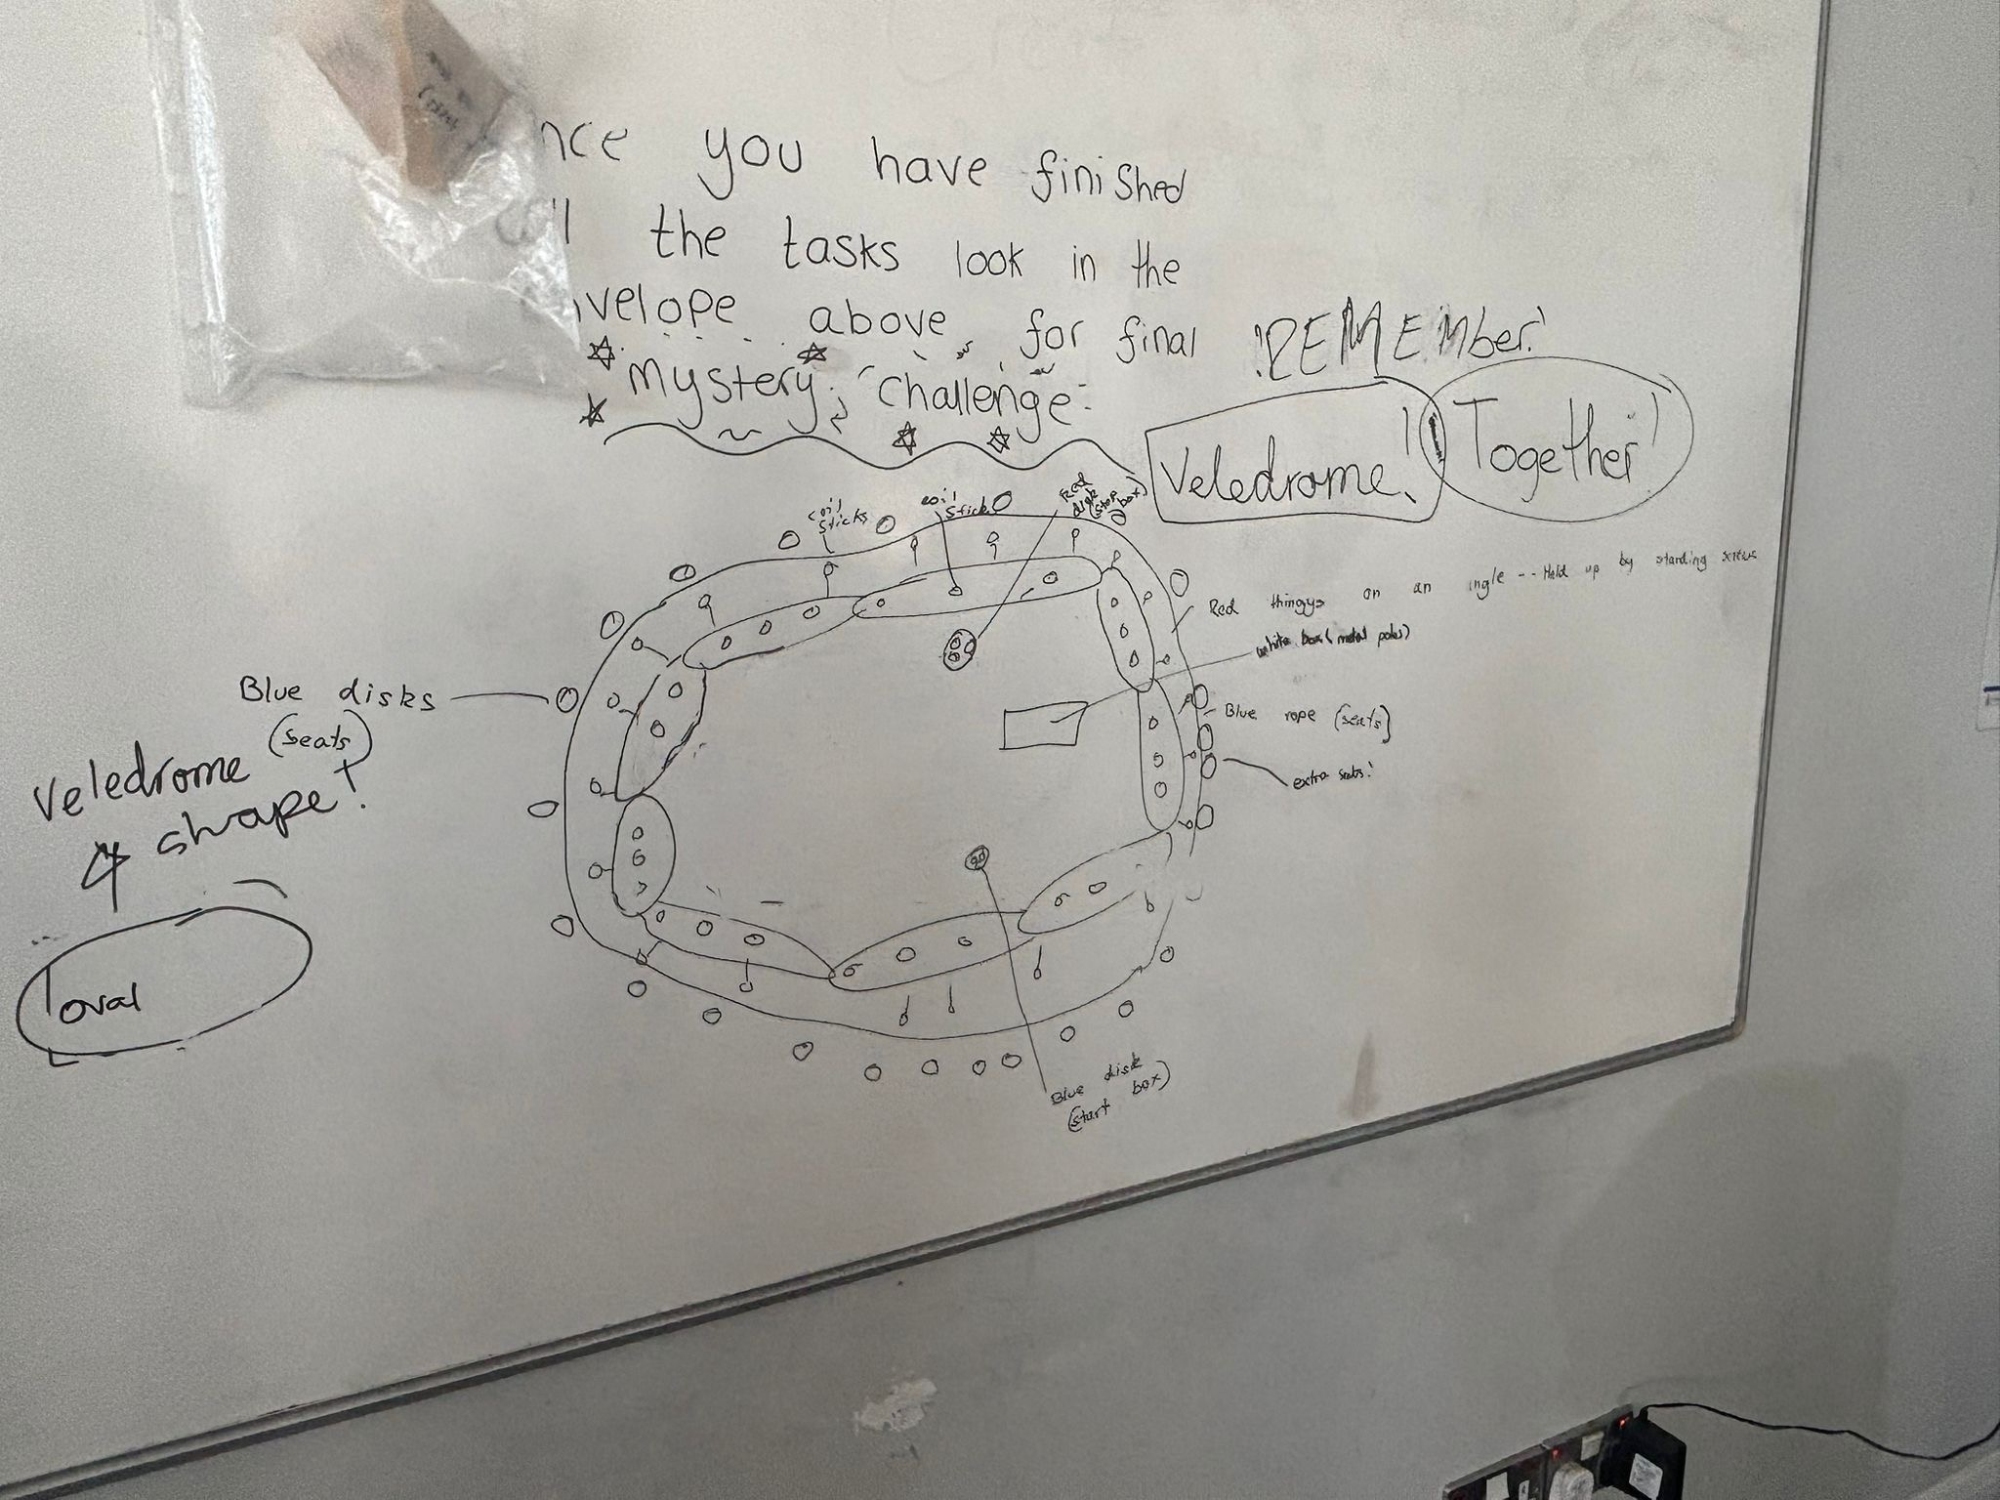 nce you have finished
ll the tasks look in the
nvelope above for final
mystery challenge
REMEMber!
Veledrome!
Together!
coil
sticks
coil
stick
Red
disk
(stop
box)
Red thingys on an angle -- Held up by standing screws
white box (metal poles)
Blue rope (seats)
extra seats!
Blue disks
(seats)
Veledrome
shape!
oval
Blue disk
(start box)